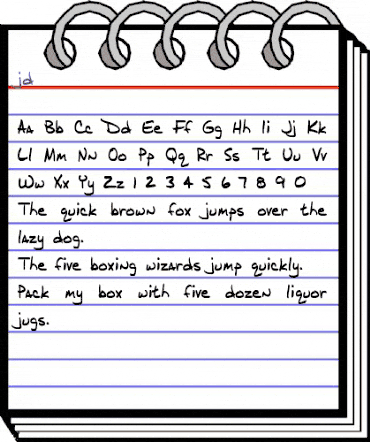 _jd
Aa Bb Cc Dd Ee Ff Gg Hh Ii Jj Kk
Ll Mm Nn Oo Pp Qq Rr Ss Tt Uu Vv
Ww Xx Yy Zz 1 2 3 4 5 6 7 8 9 0
The quick brown fox jumps over the
lazy dog.
The five boxing wizards jump quickly.
Pack my box with five dozen liquor
jugs.